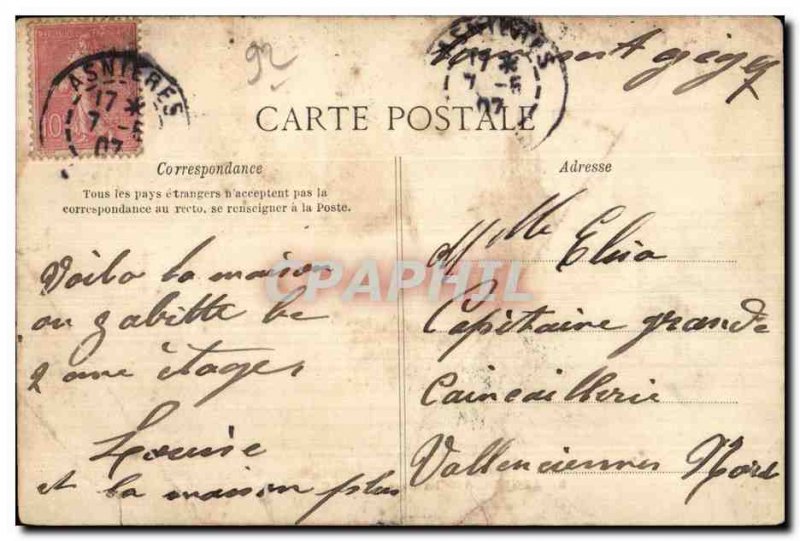 92
ASNIERES
17 *
7 - 5
07
10
ASNIERES
17 *
7 - 5
07
CARTE POSTALE
Correspondance
Adresse
Tous les pays étrangers n'acceptent pas la
correspondance au recto, se renseigner à la Poste.
CPAPHIL
Voila la maison
ou gabitte be
2 ame étages
Louise
et la maison plus
Mlle Elisa
Capitaine grande
Caincaillerie
Vallenciennes Nord